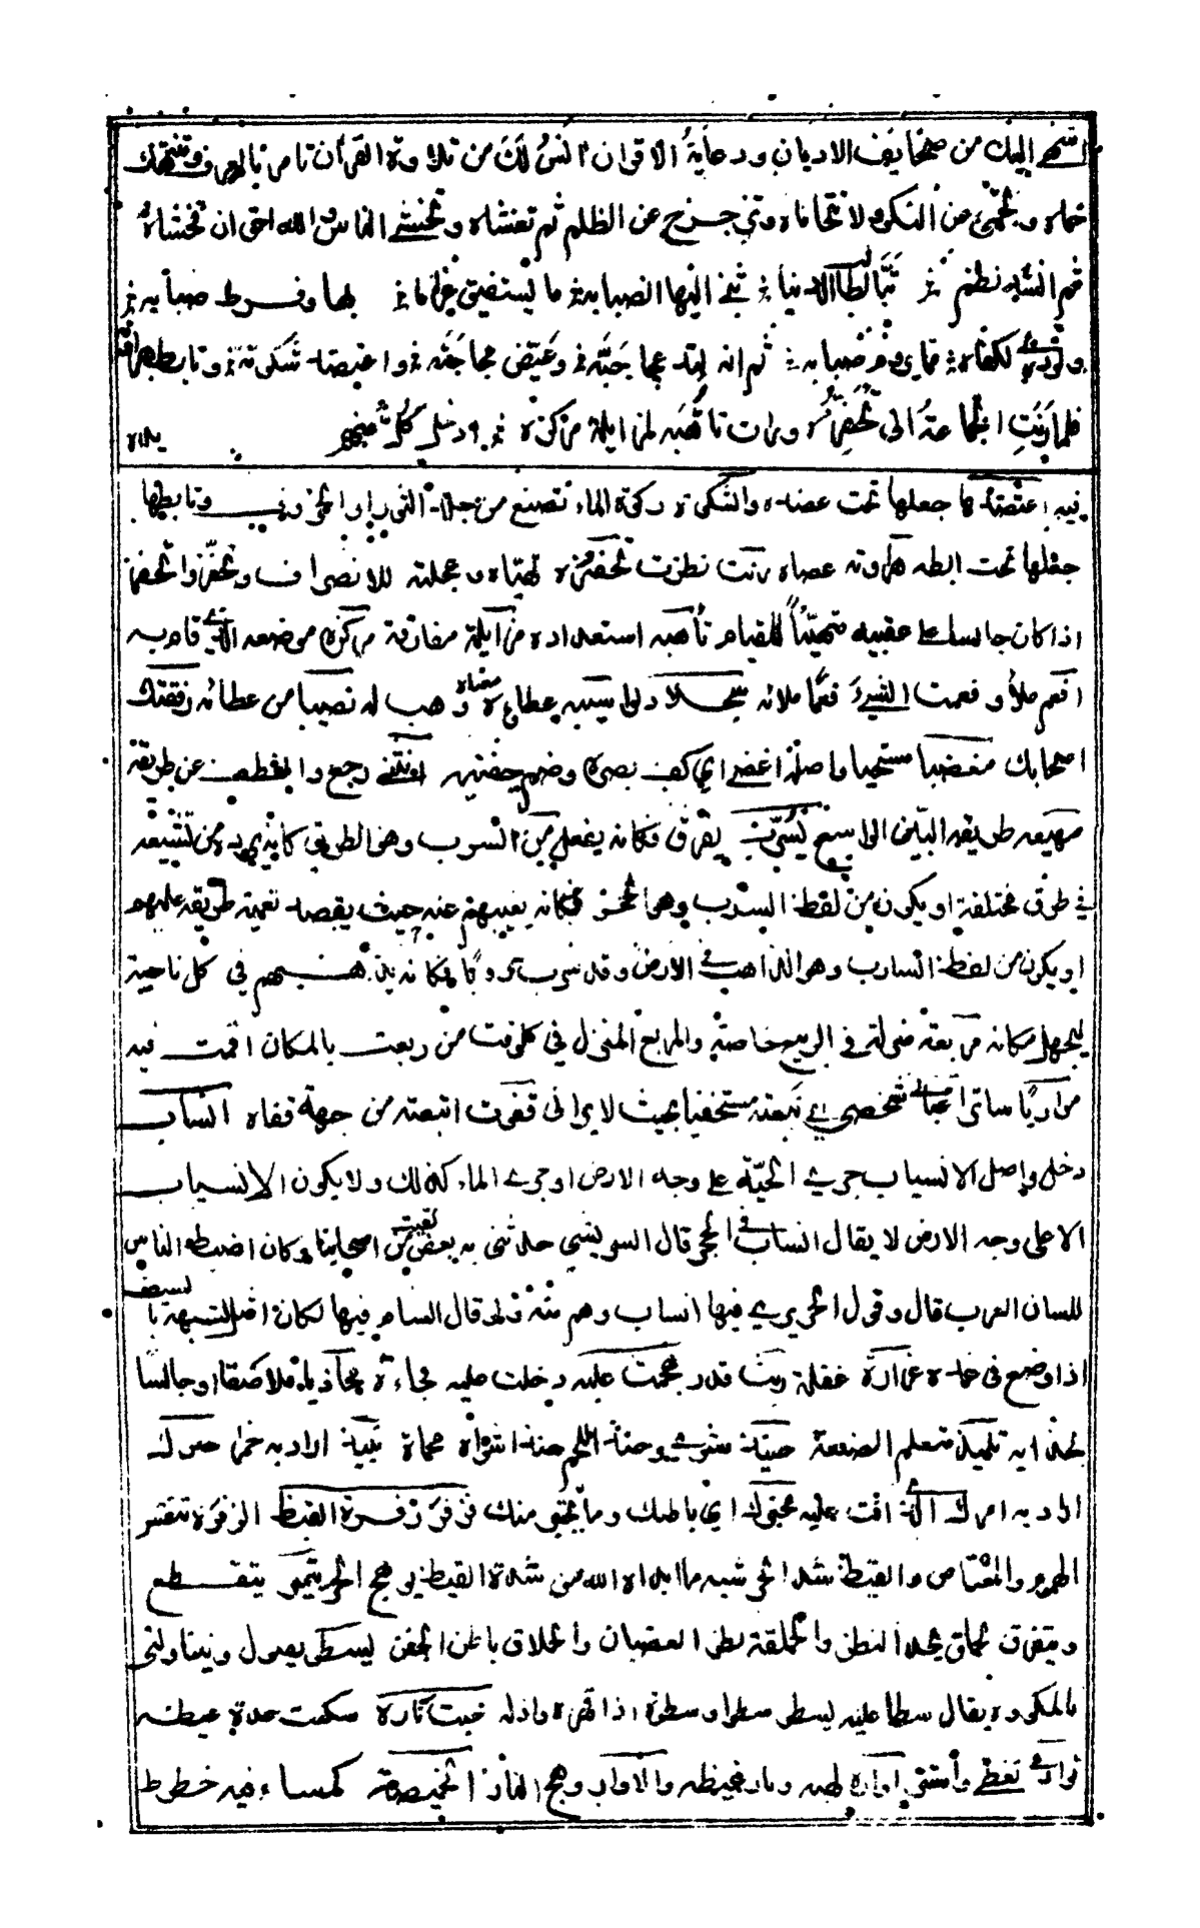 اشهى إليك من صحائف الاديان ودعابة الاقران انس لك من تلاوة القرأن تامر بالعرف وتنتهك
حماه وتحمى عن النكر ولا تتحاماه وتزحزح عن الظلم ثم تغشاه وتخشى الناس والله احق ان تخشاه
ثم انشد نظم تبا لطالب دنيا ثنى اليها انصبابه ما يستفيق غراما بها وفرط صبابه
ولو درى لكفاه مما يروم صبابه ثم انه لبد عجاجته وغيض مجاجته واعتضد شكوته وتابط هراوته
فلما رنت الجماعة الى تحفزه ورأت تأهبه لمزايلة مركزه دخل كل منهم يده
فيه اعتضدها جعلها تحت عضده والشكوة ركوة الماء تصنع من جلد وتابطها
جعلها تحت ابطه هراوته عصاه رنت نظرت تحفزه تهيأه وعجلته للانصراف وتحفز واتحفز
اذا كان جالسا على عقبيه متهيئا للقيام تأهبه استعداده مزايلة مفارقة مركزه موضعه الذى قام به
افعم ملأ وفعمت الشيء فعما ملأته سجلا دلوا سيبه عطاءه وهب له نصيبا من عطائه رفقتك
اصحابك مغضيا مستحييا واصله اغضى اي كف بصره وضم جفنيه انثنى رجع وانعطف عن طريقه
مهيعه طريقه البين الواسع يسرب يفرق فكانه يفعل من السرب وهو الطريق كانه من تشييعه
في طرق مختلفة او يكون من لفظ السرب وهو الحفر فكانه يغيبهم عنه حيث يقصد تعمية طريقه عليهم
او يكون من لفظ السارب وهو الذاهب في الارض وقد سرب سروبا فكانه يذهبهم في كل ناحية
ليجهل مكانه مربعه منزله في الربيع خاصة والمربع المنزل في كل وقت من ربعت بالمكان اقمت فيه
مواريا ساترا عيانى شخصي اي تبعته مستخفيا بحيث لا يرانى قفوت اتبعته من جهة قفاه انساب
دخل واصل الانسياب جري الحية على وجه الارض او جرى الماء كذلك ولا يكون الانسياب
الا على وجه الارض لا يقال انساب في الحجر قال السويشي حدثنى به بعض من لقيته من اصحابنا وكان اضبط الناس
للسان العرب قال وقول الحريري فيها انساب وهم منه ولو قال انسام فيها لكان اشبه لتشبيهه بالسيف
اذا وضع في غمده غرارة غفلة ريث قدر هجمت عليه دخلت عليه فجاءة محاذيا ملاصقا او جالسا
بحذايه تلميذ متعلم الصنعة حنيذ مشوي وحنذ اللحم حنذا شواه محماة نبيذ اراد به خمرا خبرك
اراد به امرك الذى اقمت عليه مخبرك اي باطنك وما يختفى منك فزفر زفرة القيظ الزفرة تنفس
المهموم والمغتاص والقيظ شدة الحر شبه ما ابداه الله من شدة القيظ بوهج الحر يتميز يتقطع
ويتفرق يحملق يحد النظر والحملقة نظر الغضبان والحملاق باطن الجفن يسطو يصول ويتناولنى
بالمكروه يقال سطا عليه يسطو سطوا وسطوة اذا قهره واذله خبت ناره سكنت حدة غيظه
توارى تغطى واستتر اواره لهبه ونار غيظه والاوار وهج النار الخميصة كساء فيه خطوط